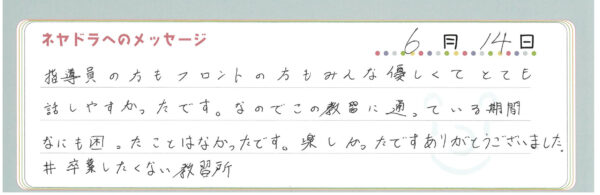 ネヤドラへのメッセージ
6月14日
指導員の方もフロントの方もみんな優しくてとても
話しやすかったです。なのでこの教習に通っている期間
なにも困ったことはなかったです。楽しかったですありがとうございました。
#卒業したくない教習所